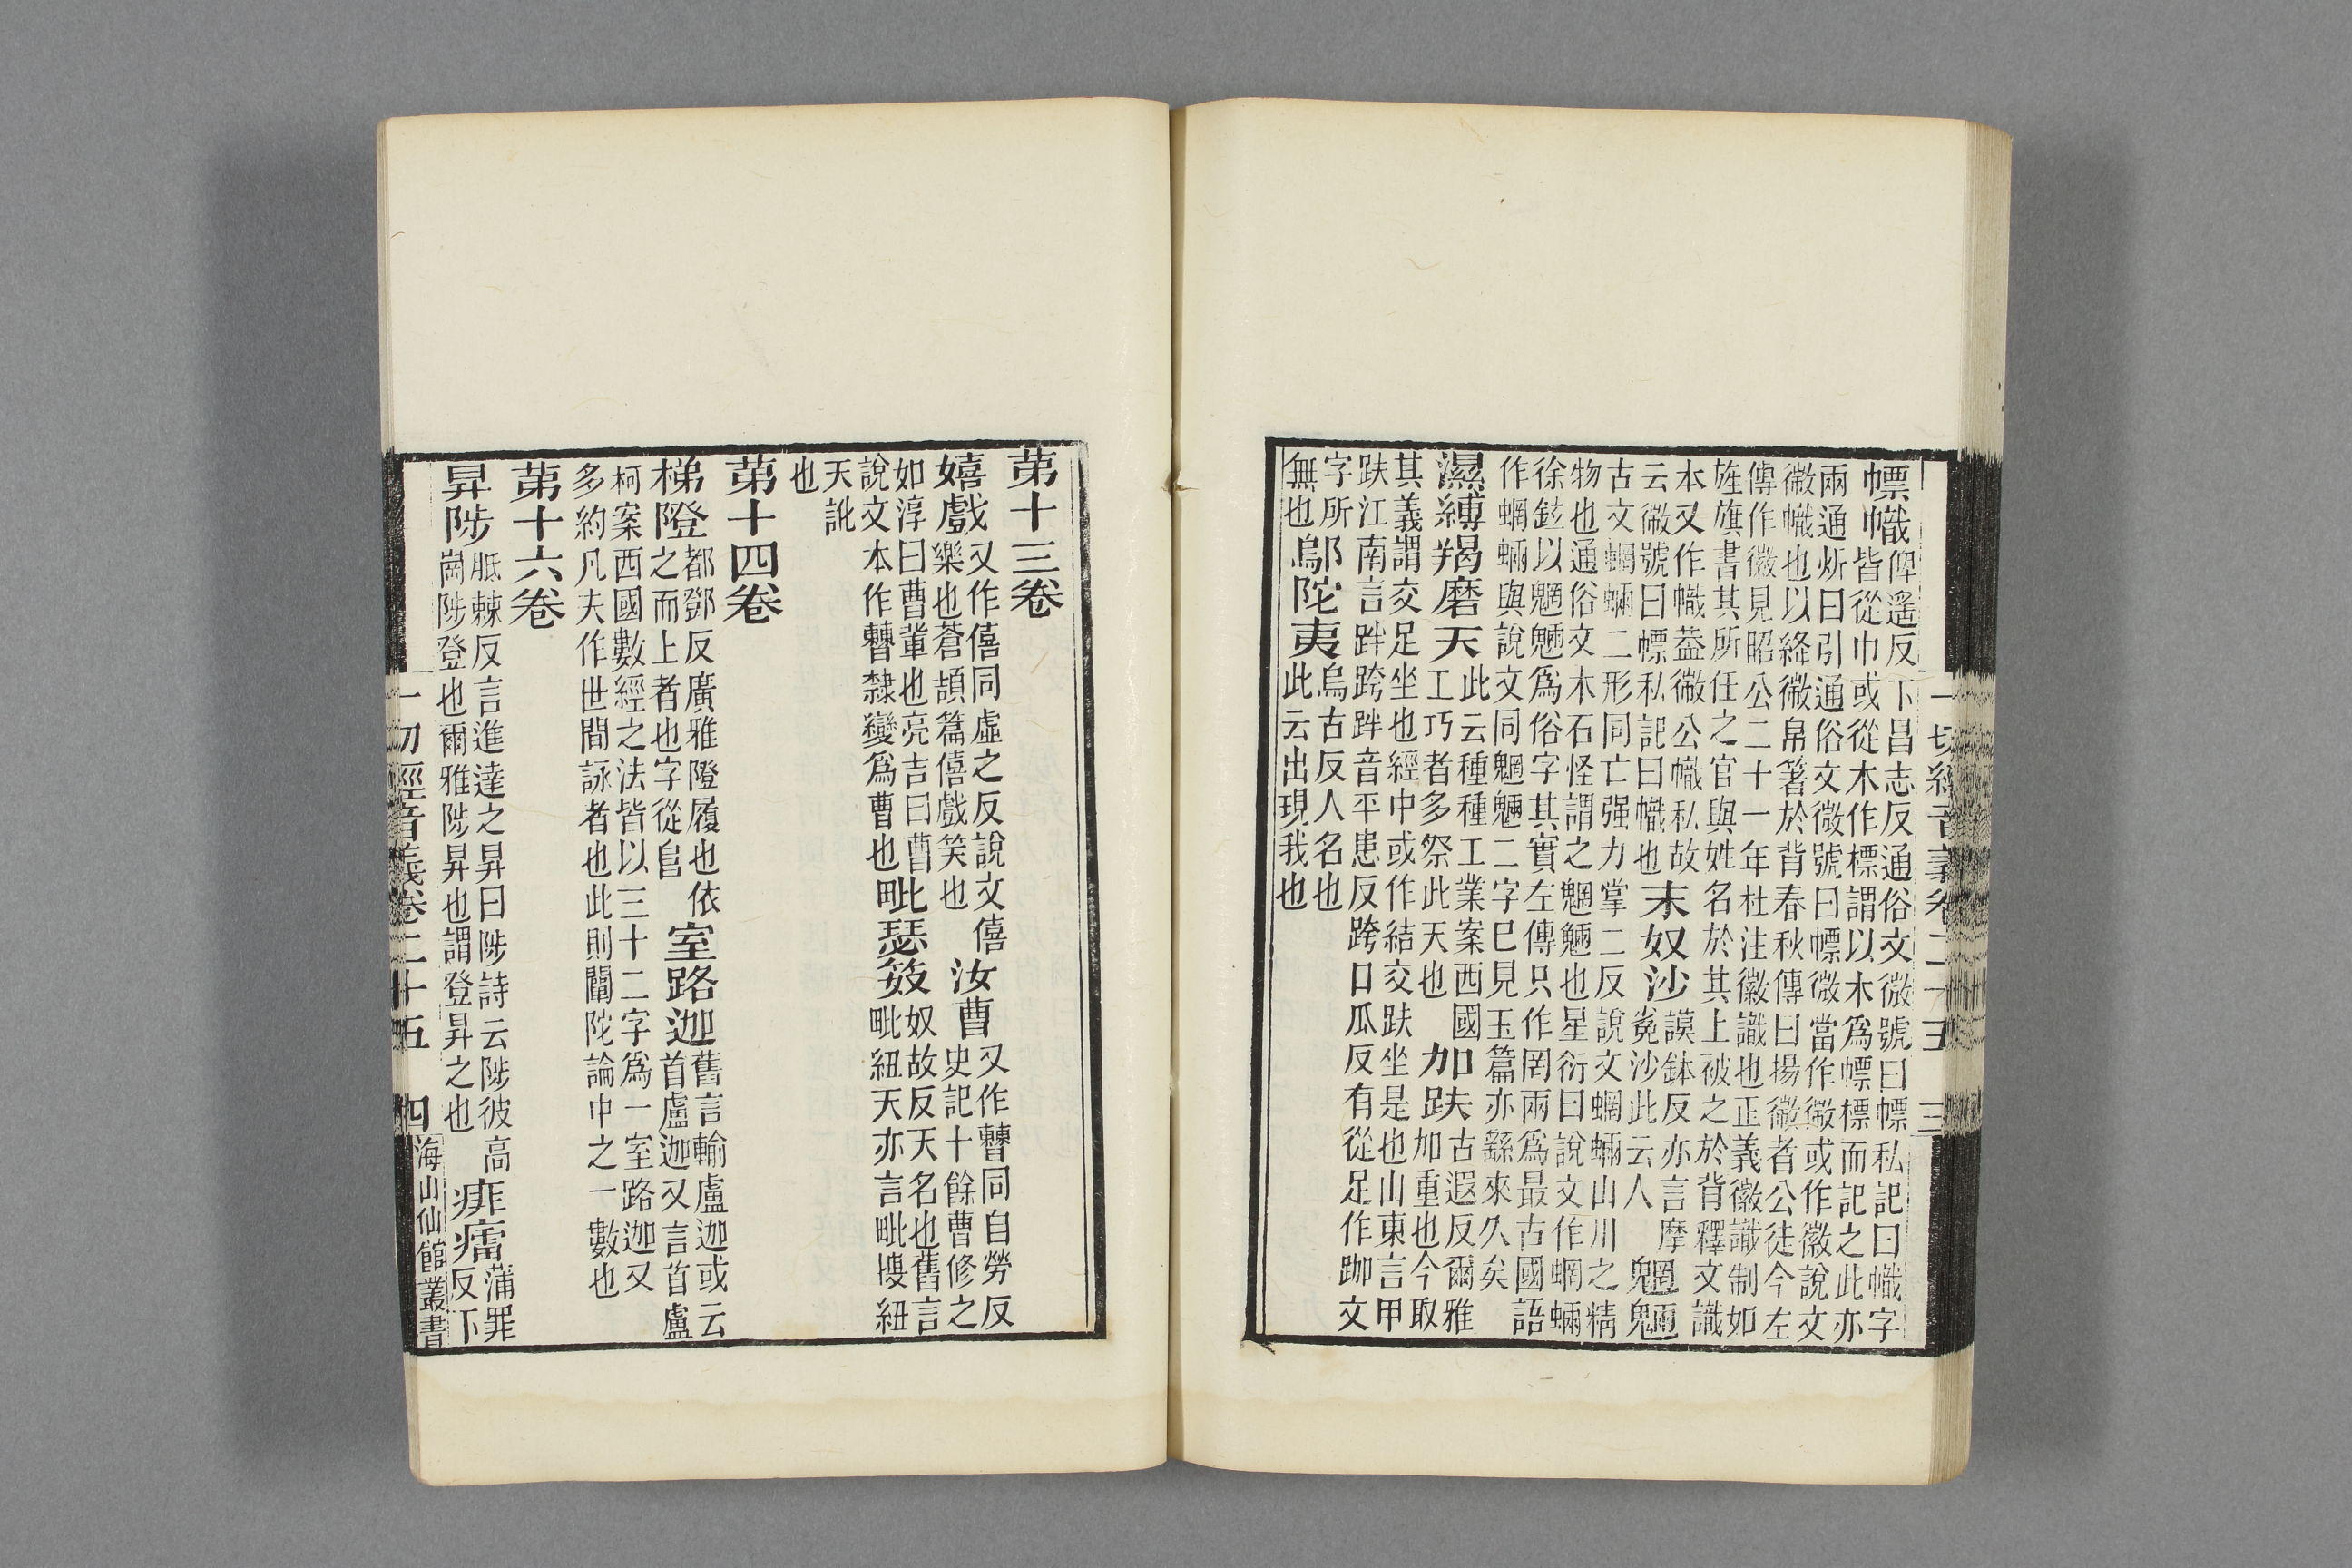 一切經音義卷二十五 三
幖幟俾遙反下昌志反通俗文微號曰幖私記曰幟字
皆從巾或從木作標謂以木爲幖標而記之此亦
兩通炘曰引通俗文微號曰幖微當作徽或作徽說文
徽幟也以絳徽帛箸於背春秋傳曰揚徽者公徒今左
傳作徽見昭公二十一年杜注徽識也正義徽識制如
旌旗書其所任之官與姓名於其上被之於背釋文識
本又作幟葢徽公幟私故
云徽號曰幖私記曰幟也
末奴沙謨鉢反亦言摩
㝹沙此云人
魍魎
古文蝄蜽二形同亡强力掌二反說文蝄蜽山川之精
物也通俗文木石怪謂之魍魎也星衍曰說文作蝄蜽
徐鉉以魍魎爲俗字其實左傳只作罔兩爲最古國語
作蝄蜽與說文同魍魎二字已見玉篇亦繇來久矣
濕縛羯磨天此云種種工業案西國
工巧者多祭此天也
加趺古遐反爾雅
加重也今取
其義謂交足坐也經中或作結交趺坐是也山東言甲
趺江南言跘跨跘音平患反跨口瓜反有從足作跏文
字所
無也
鄔陀夷烏古反人名也
此云出現我也
第十三卷
嬉戲又作僖同虛之反說文僖
樂也蒼頡篇僖戲笑也
汝曹又作𣍘同自勞反
史記十餘曹修之
如淳曰曹輩也亮吉曰曹
說文本作𣍘隸變爲曹也
毗瑟笯奴故反天名也舊言
毗紐天亦言毗㛹紐
天訛
也
第十四卷
梯隥都鄧反廣雅隥履也依
之而上者也字從𨸏
室路迦舊言輸盧迦或云
首盧迦又言首盧
柯案西國數經之法皆以三十二字爲一室路迦又
多約凡夫作世間詠者也此則闡陀論中之一數也
第十六卷
昇陟胝棘反言進達之昇曰陟詩云陟彼高
崗陟登也爾雅陟昇也謂登昇之也
痱癗蒲罪
反下
一切經音義卷二十五 四 海山仙館叢書